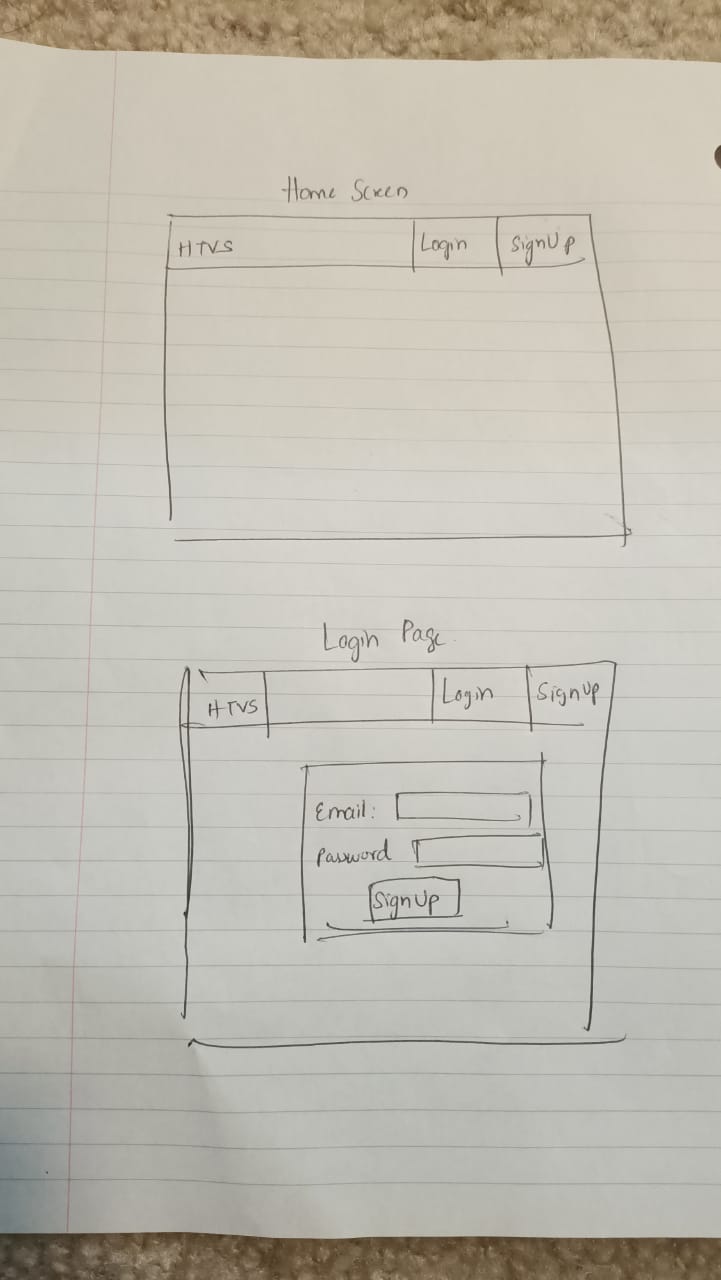 Home Screen
HTVS Login SignUp
Login Page
HTVS Login SignUp
Email:
Password
SignUp